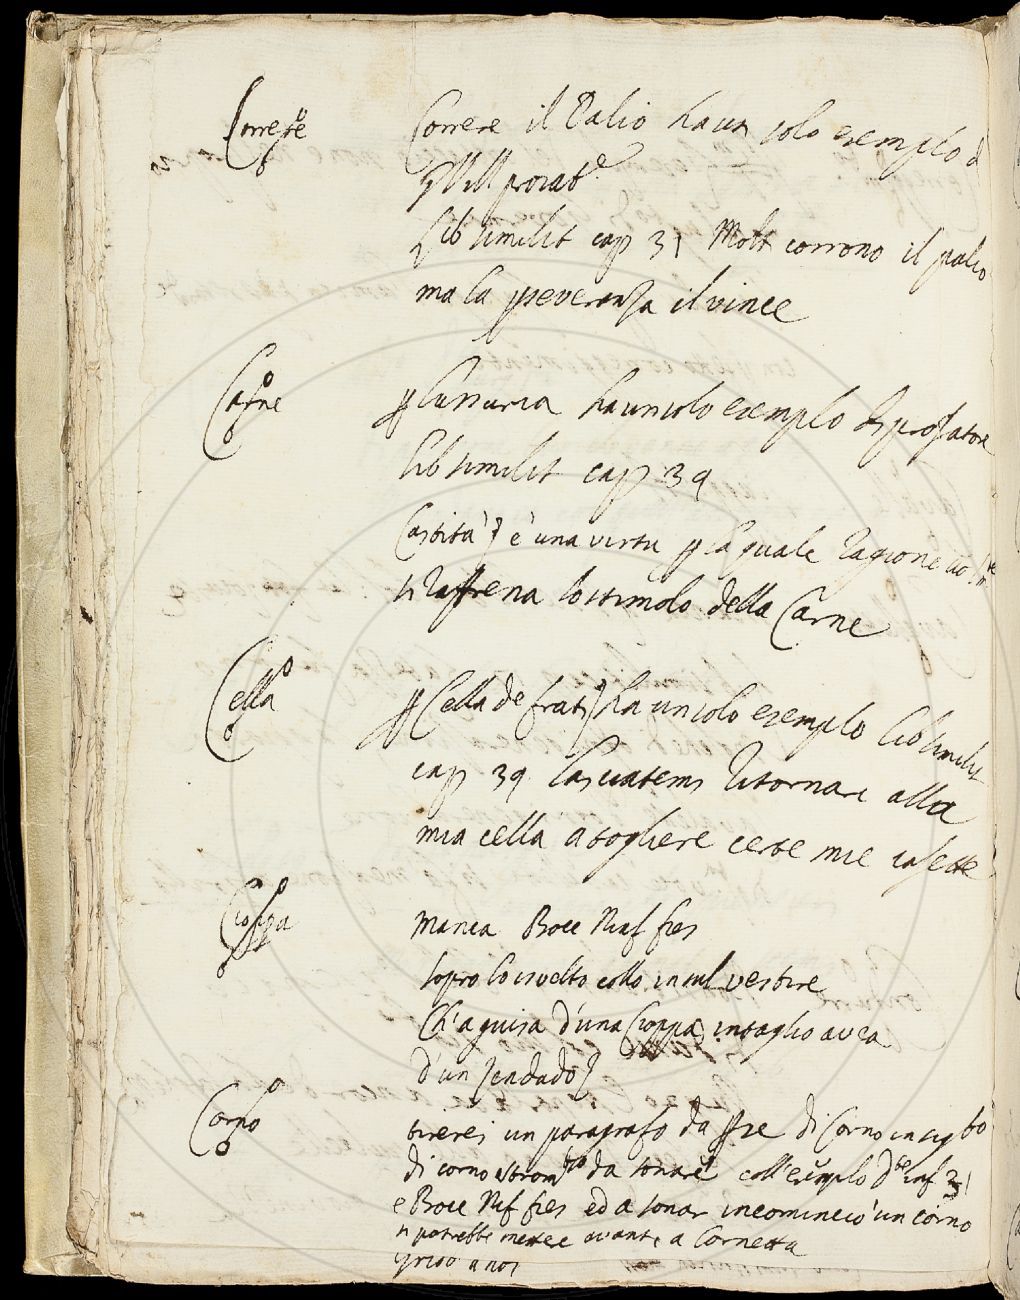 Correre
Correre il Palio ha un solo esempio d
Vill
Lib similit cap 31 Molti corrono il palio
ma la pseveranza il vince
Carne
p lussuria ha un solo esempio di prosatore
lib similit cap 39
Castità è una virtu p la quale ragione
si raffrena lo stimolo della Carne
Cella
p Cella de frati ha un solo esempio lib similit
cap 39 lasciatemi ritornare alla
mia cella a togliere certe mie cosette
Cioppa
manca Bocc Ninf fies
sopra lo isvelto collo in sul vestire
Ch'a guisa d'una Cioppa intaglio avea
d'un zendado
Corno
tirerei un paragrafo da di Corno in
di corno da sonare coll'esemplo inf 31
e Bocc Nif fies ed a sonar incominciò un corno
si potrebbe mettere avanti a Cornetta